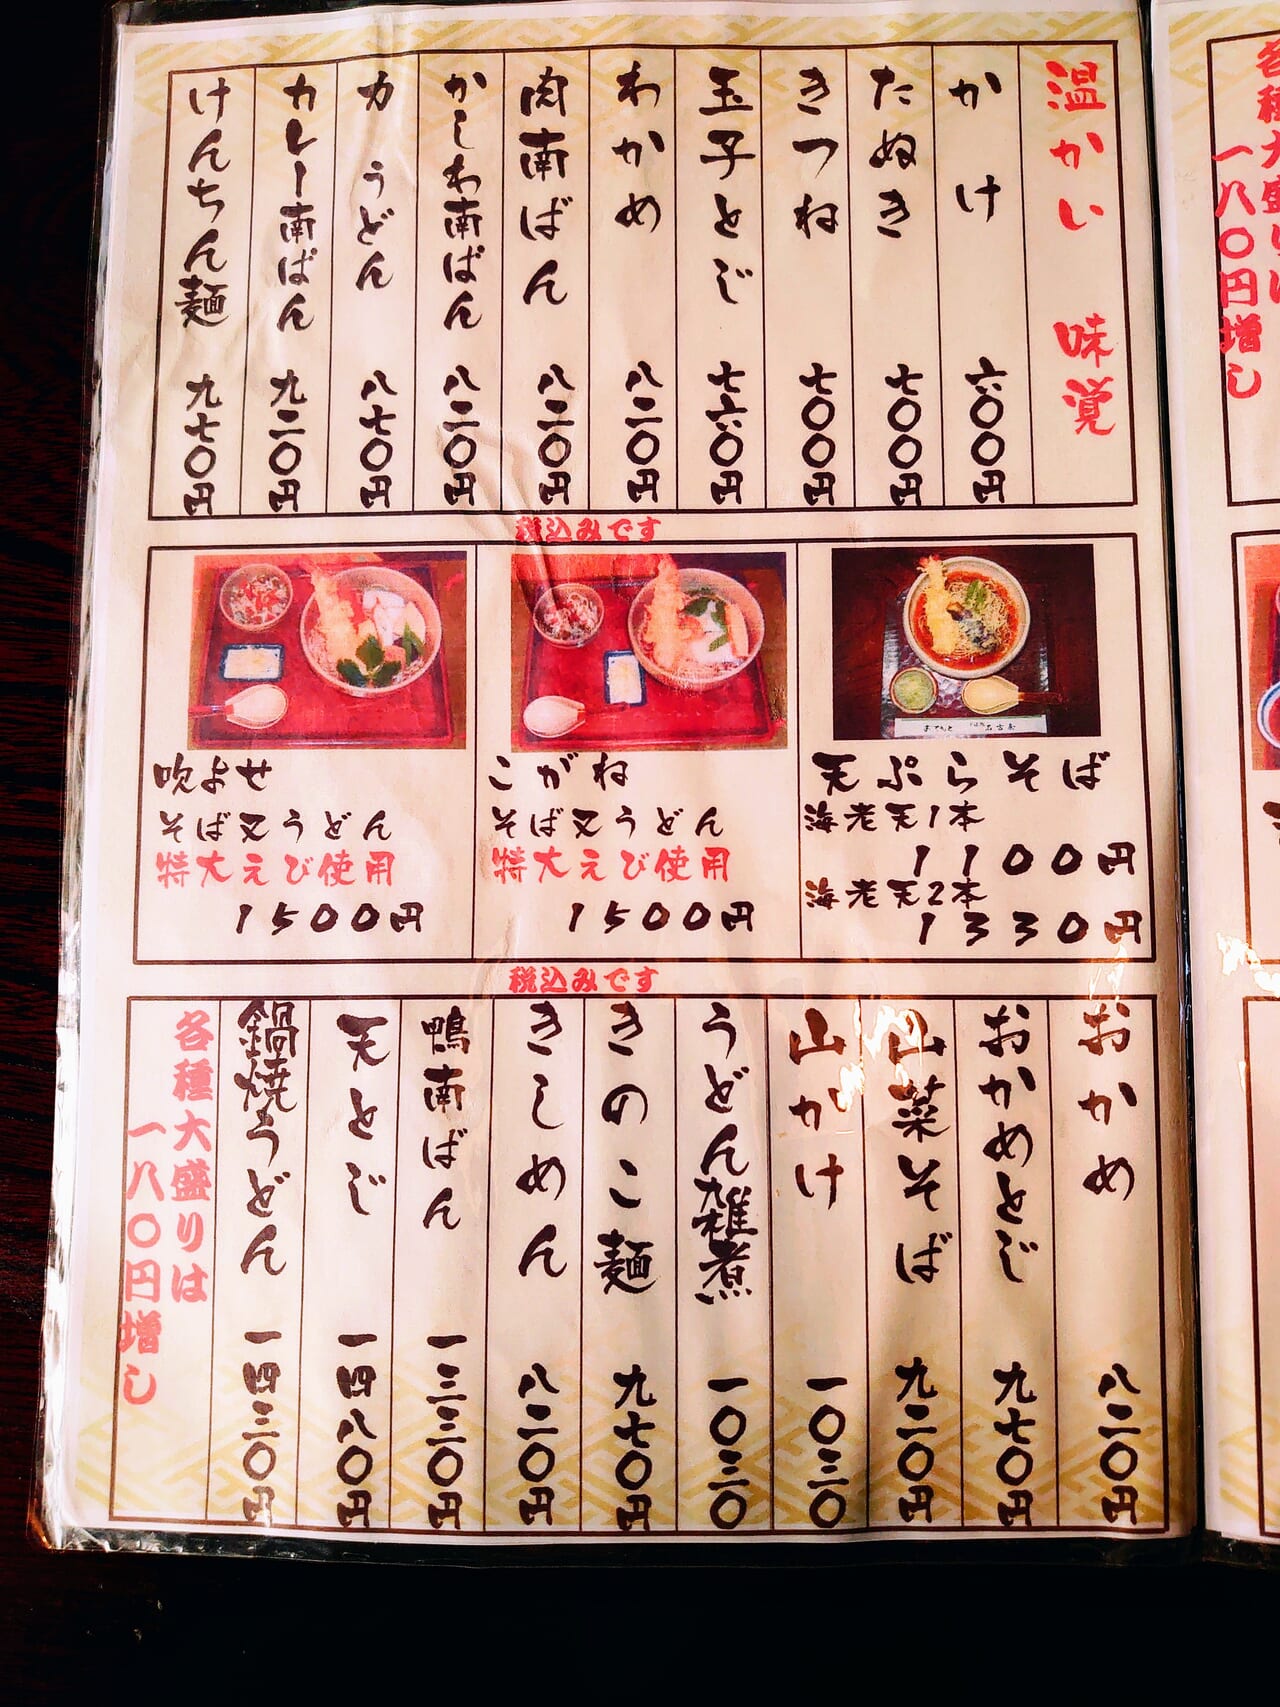 温かい 味覚
かけ 六〇〇円
たぬき 七〇〇円
きつね 七〇〇円
玉子とじ 七六〇円
わかめ 八二〇円
肉南ばん 八二〇円
かしわ南ばん 八二〇円
力うどん 八七〇円
カレー南ばん 九二〇円
けんちん麺 九七〇円
税込みです
天ぷらそば
海老天1本
1100円
海老天2本
1330円
こがね
そば又うどん
特大えび使用
1500円
吹よせ
そば又うどん
特大えび使用
1500円
税込みです
おかめ 八二〇円
おかめとじ 九七〇円
山菜そば 九二〇円
山がけ 一〇三〇
うどん雑煮 一〇三〇
きのこ麺 九七〇円
きしめん 八二〇円
鴨南ばん 一三三〇円
天とじ 一四八〇円
鍋焼うどん 一四三〇円
各種大盛りは
一八〇円増し
各種大盛りは
一八〇円増し